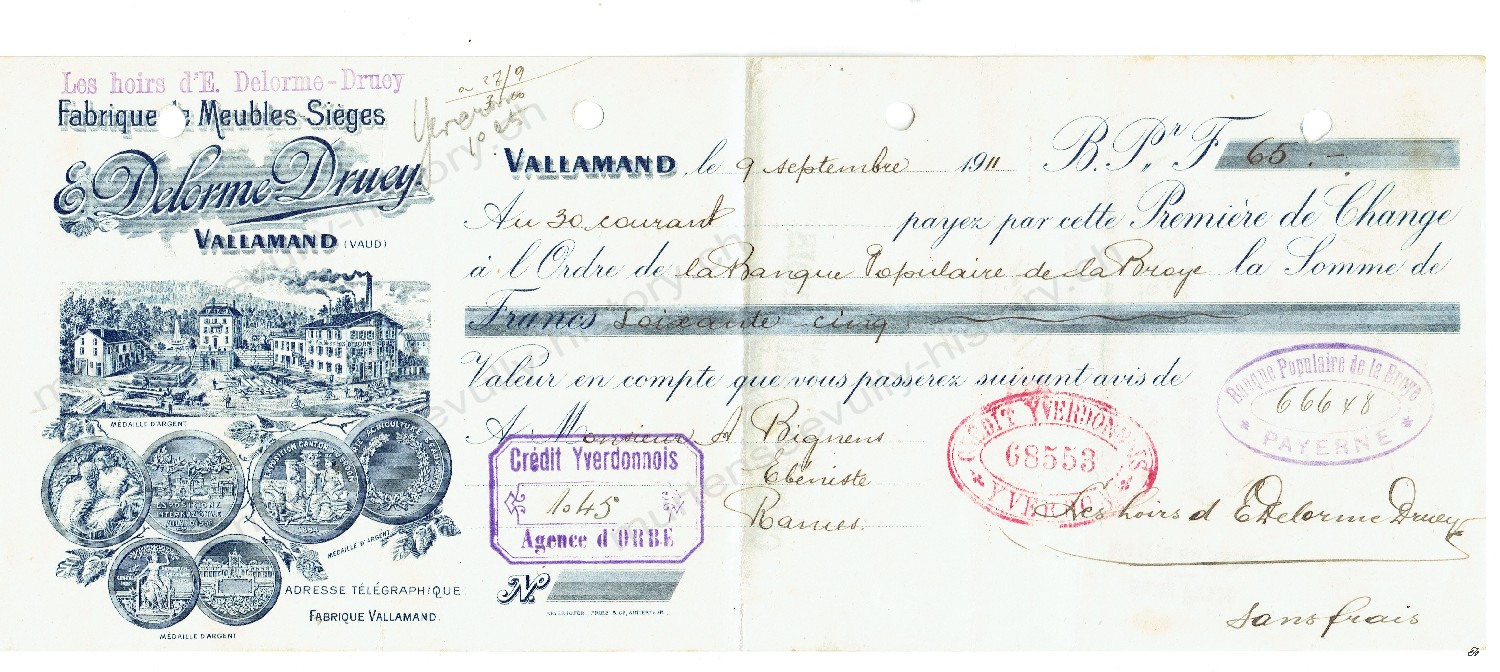 Les hoirs d'E. Delorme-Druey
Fabrique de Meubles Sièges
E. Delorme-Druey.
VALLAMAND (VAUD)
MÉDAILLE D'ARGENT
MÉDAILLE D'ARGENT
MÉDAILLE D'ARGENT
ADRESSE TÉLÉGRAPHIQUE
FABRIQUE VALLAMAND.
a 27/9
1045
VALLAMAND, le 9 septembre 1911 B. P.r F. 65.-
Au 30 courant payez par cette Première de Change
à l'Ordre de la Banque Populaire de la Broye la Somme de
Francs Soixante cinq
Valeur en compte que vous passerez suivant avis de
A Monsieur A Bignens
Ebéniste
Rances
Crédit Yverdonnois
1045
Agence d'ORBE
No.
CRÉDIT YVERDONNOIS
68553
YVERDON
Banque Populaire de la Broye
66648
PAYERNE
Les hoirs d E Delorme Druey
sans frais
murtensevully-history.ch